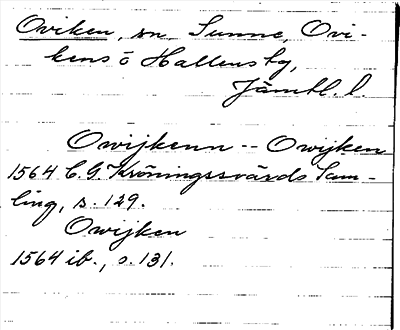 Oviken, sn, Sunne, Ovi-
kens o Hallens tg,
Jämtl. l.
Owijkenn -- Owijken
1564 C. G. Kröningssvärds Sam-
ling, s. 129.
Owijken
1564 ib., s. 131.